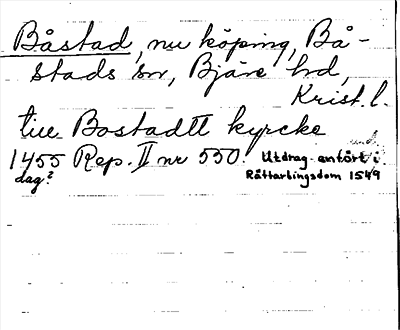 Båstad, nu köping, Bå-
stads sn, Bjäre hd,
Krist. l.
till Bostadtt kyrcke
1455 Rep. II nr 550. Utdrag anfört i
dag? Råttartingsdom 1549